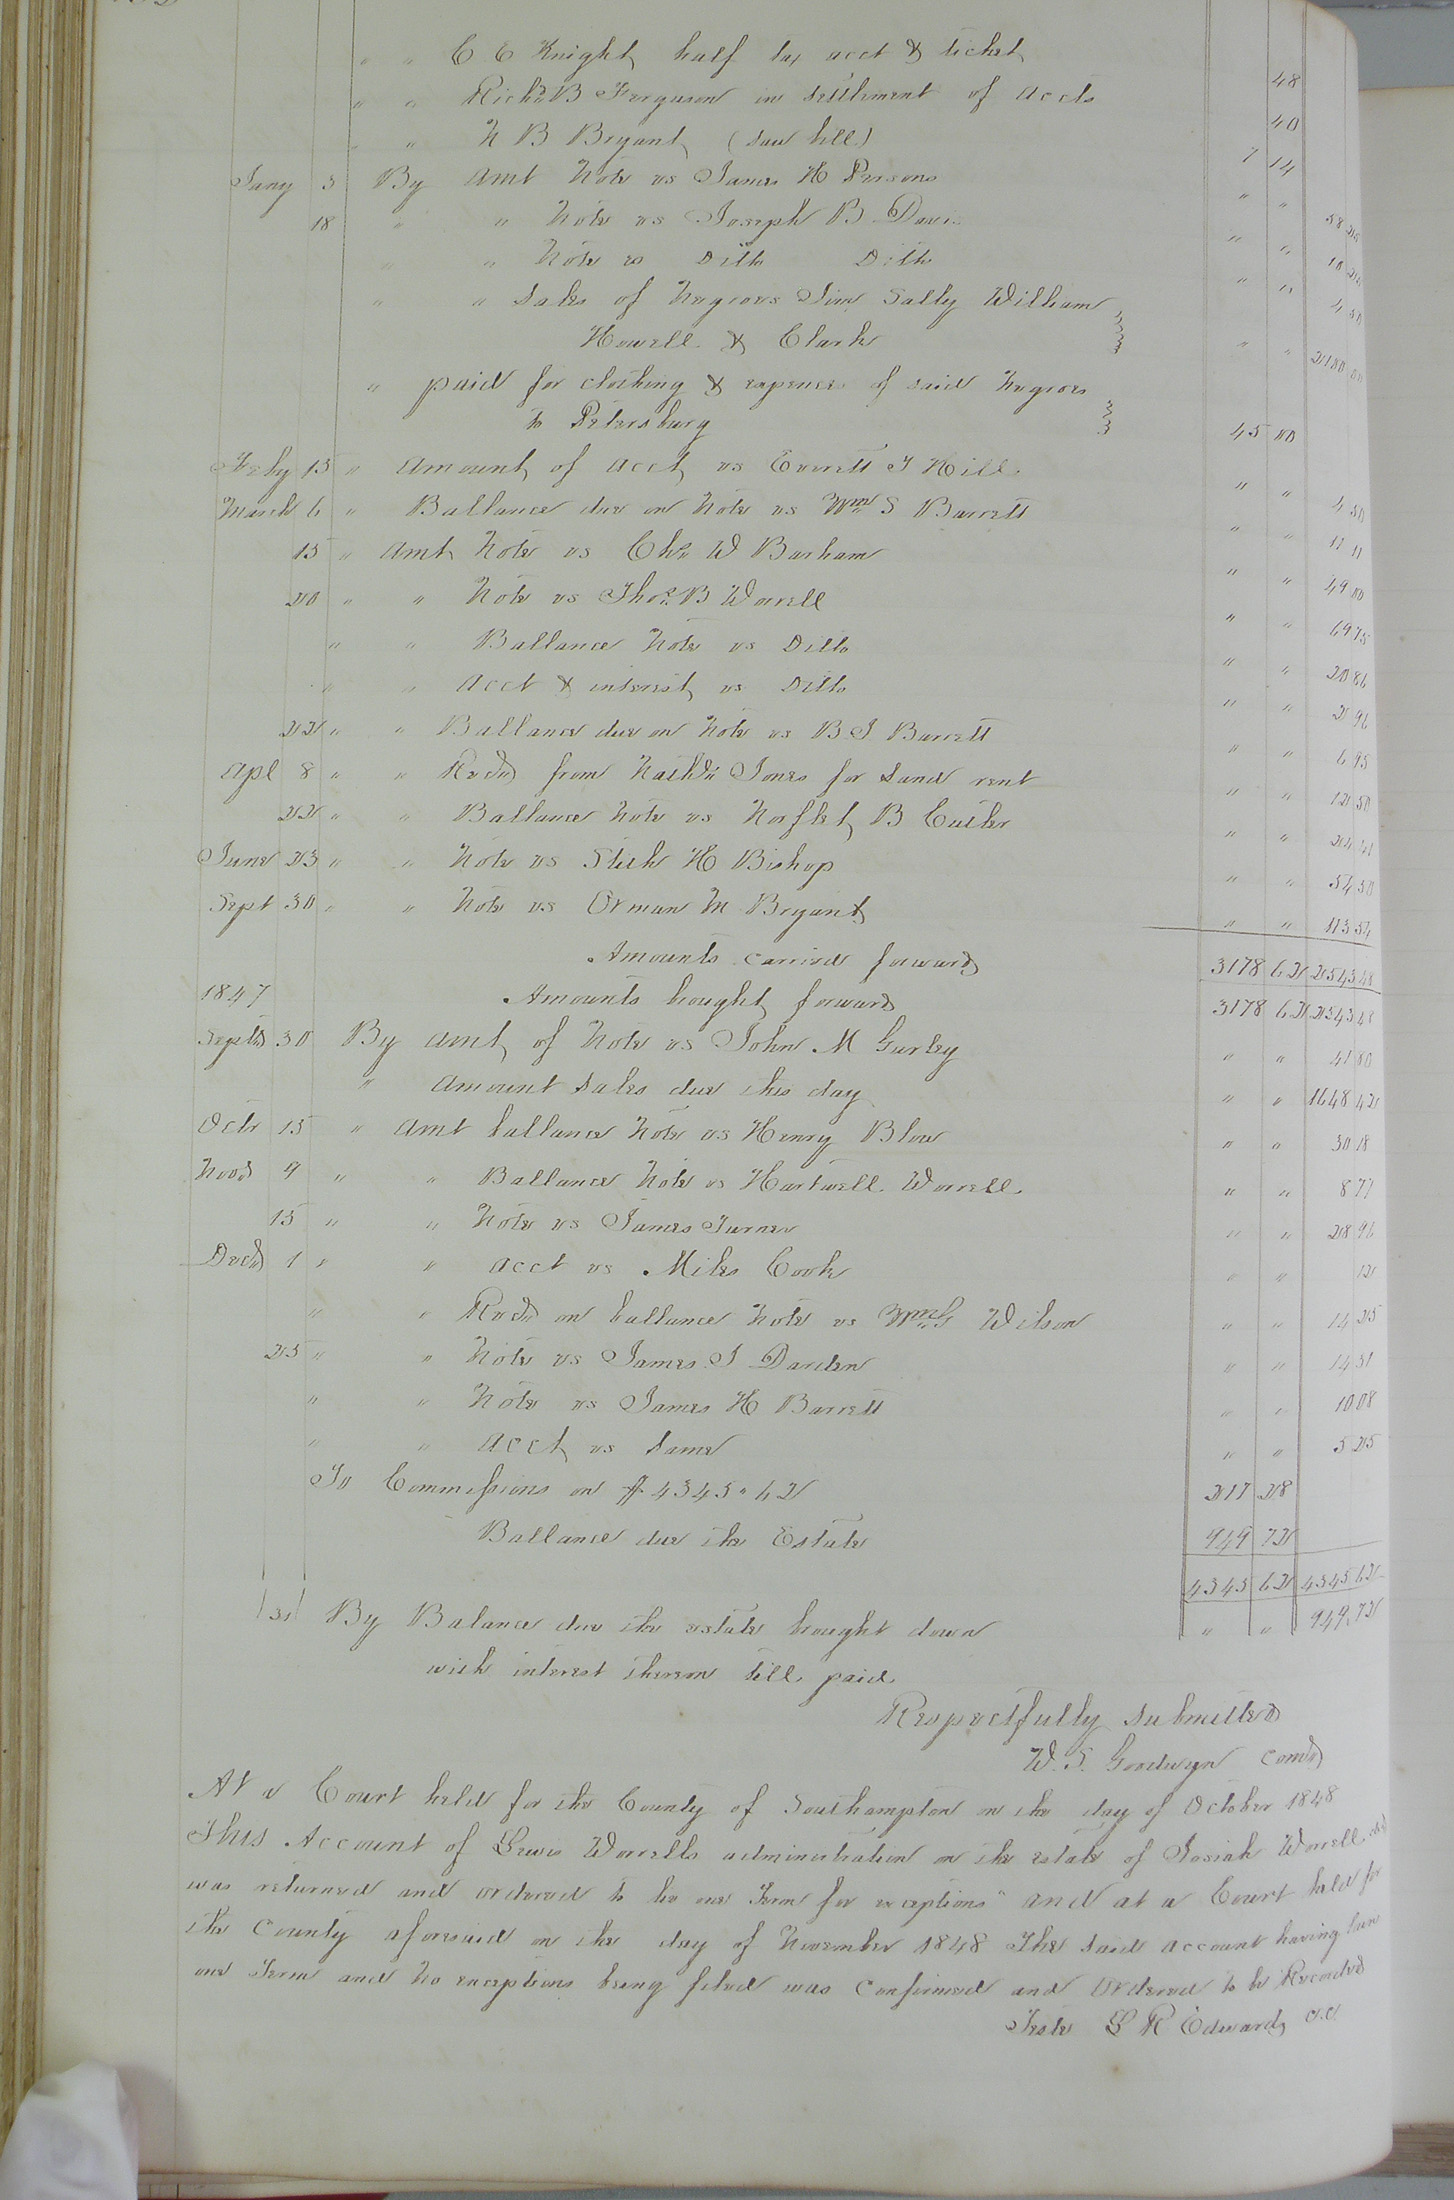 " " C C Knight half tax acct & ticket 48
" " Richd B Ferguson in settlement of accts 40
" N B Bryant (saw bill) 7 14
Jany 5 By amt Note vs James H Persons " " 58 25
18 " " Note vs Joseph B Davis " " 10 25
" " Note vs Ditto Ditto " " 4 50
" " Sales of Negroes Jim Sally William
Howell & Clark " " 2100 00
" paid for clothing & expences of said Negroes
to Petersburg 45 00
Feby 15 " Amount of acct vs Everett J Hill " " 4 50
March 6 " Ballance due on Note vs Wm S Barrett " " 11 11
15 " Amt Note vs Chs W Barham " " 49 00
20 " " Note vs Thos B Worrell " " 69 75
" " Ballance Note vs Ditto " " 20 86
" " Acct & interest vs Ditto " " 2 96
22 " " Ballance due on Note vs B J Barrett " " 6 95
Apl 8 " " Recd from Nathl Jones for Land rent " " 12 50
22 " " Ballance Note vs Norflet B Cutler " " 24 41
June 23 " " Note vs Steth H Bishop " " 54 50
Sept 30 " " Note vs Orman M Bryant " " 113 54
Amounts carried forward 3178 62 2543 48
1847 Amounts brought forward 3178 62 2543 48
Septr 30 By amt of Note vs John M Gurley " " 41 80
" Amount Sales due this day " " 1648 42
Octr 15 " Amt ballance Note vs Henry Blow " " 30 18
Novr 9 " " Ballance Note vs Hartwell Worrell " " 8 77
15 " " Note vs James Turner " " 28 96
Decr 1 " " Acct vs Miles Cook " " 12
" " Recd on ballance Note vs Wm G Wilson " " 14 25
25 " " Note vs James J Darden " " 14 31
" " Note vs James H Barrett " " 10 08
" " Acct vs Same " " 5 25
To Commissions on $4345.62 217 28
Ballance due the Estate 949 72
4345 62 4345 62
31 By Balance due the estate brought down " " 949 72
with interest thereon till paid
Respectfully Submitted
W. S. Goodwyn Comr
At a Court held for the County of Southampton on the day of October 1848
This Account of Lewis Worrells administration on the estate of Josiah Worrell decd
was returned and ordered to lie one Term for exceptions" and at a Court held for
the County aforesaid on the day of November 1848 The said account having laen
one Term and no exceptions being filed was Confirmed and Ordered to be Recorded
Teste L R Edwards C.C.